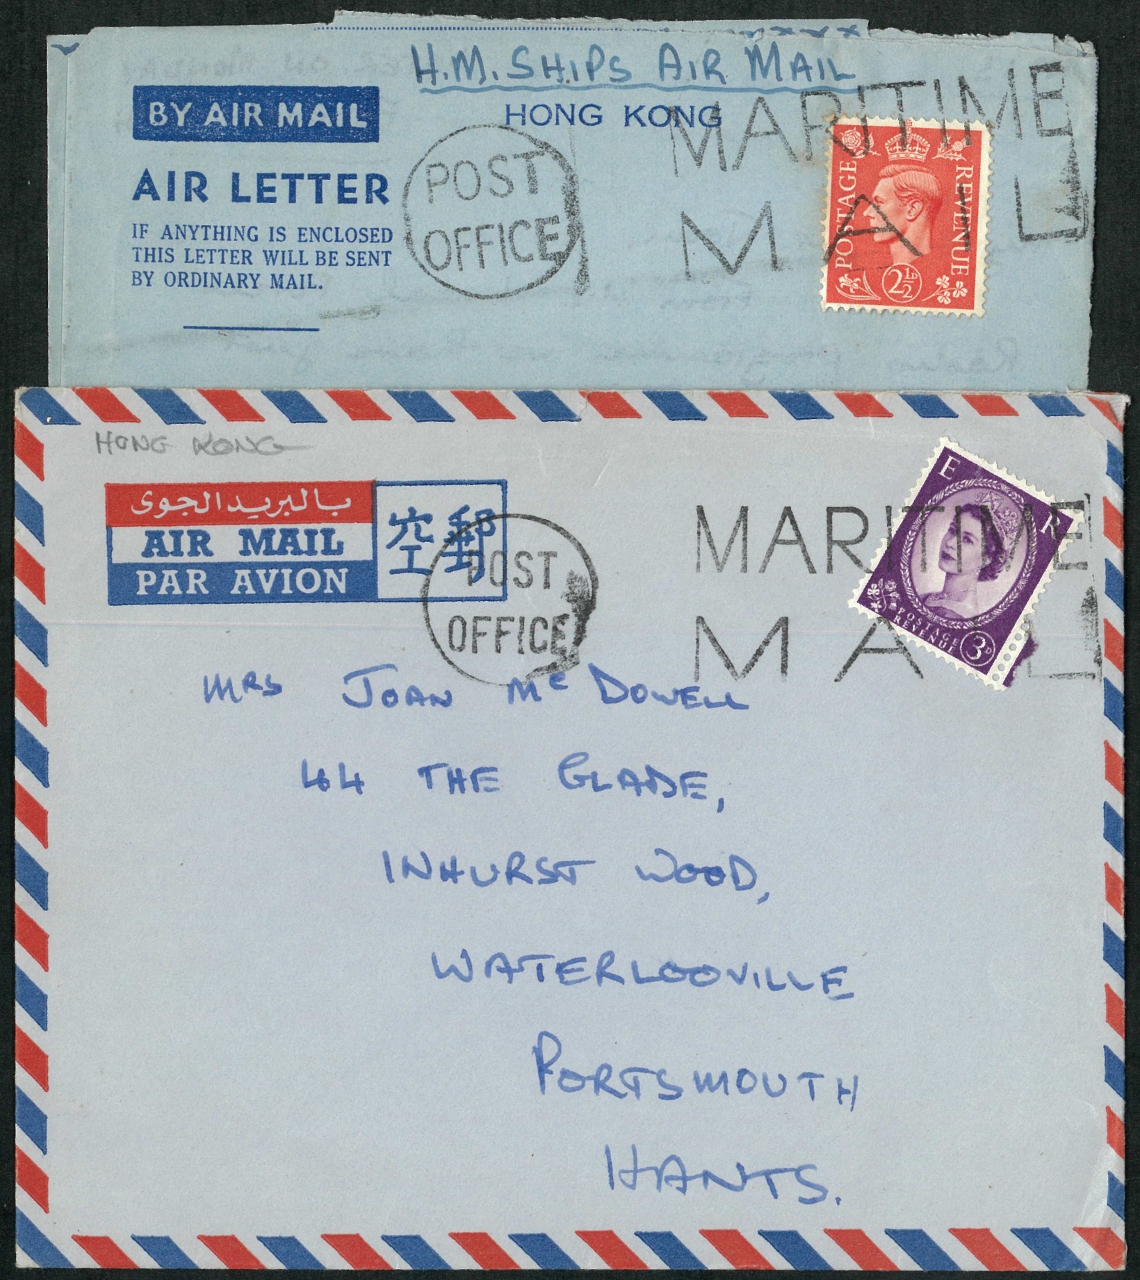 H.M. SHIPS AIR MAIL
BY AIR MAIL
HONG KONG
AIR LETTER
IF ANYTHING IS ENCLOSED
THIS LETTER WILL BE SENT
BY ORDINARY MAIL.
POST
OFFICE
MARITIME
MAIL
POSTAGE
REVENUE
2½D
HONG KONG
بالبريد الجوى
AIR MAIL
PAR AVION
空郵
POST
OFFICE
MARITIME
MAIL
E R
POSTAGE
REVENUE
3D
MRS JOAN McDOWELL
44 THE GLADE,
INHURST WOOD,
WATERLOOVILLE
PORTSMOUTH
HANTS.